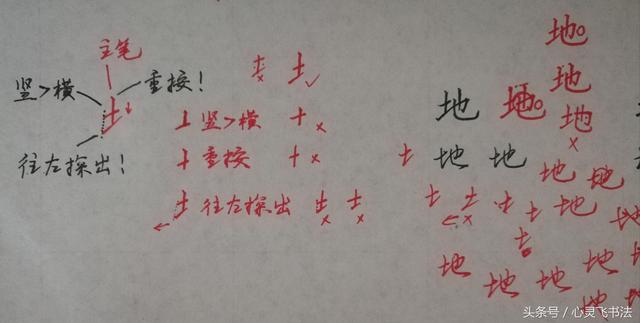 主笔
竖>横
重按！
土
往左探出！
土
竖>横
十
重按
十
土
往左探出
土
土
地
地
地
地
地
地
地
地
地
土
地
地
土
土
土
土
地
地
土
地
地
地
地
地
地
头条号 / 心灵飞书法